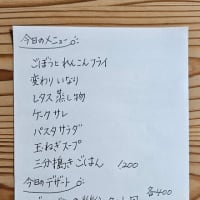 今日のメニュー
ごぼうとれんこんフライ
変わりいなり
レタス蒸し物
ケークサレ
パスタサラダ
玉ねぎスープ
三分搗きごはん 1200
今日のデザート
各400